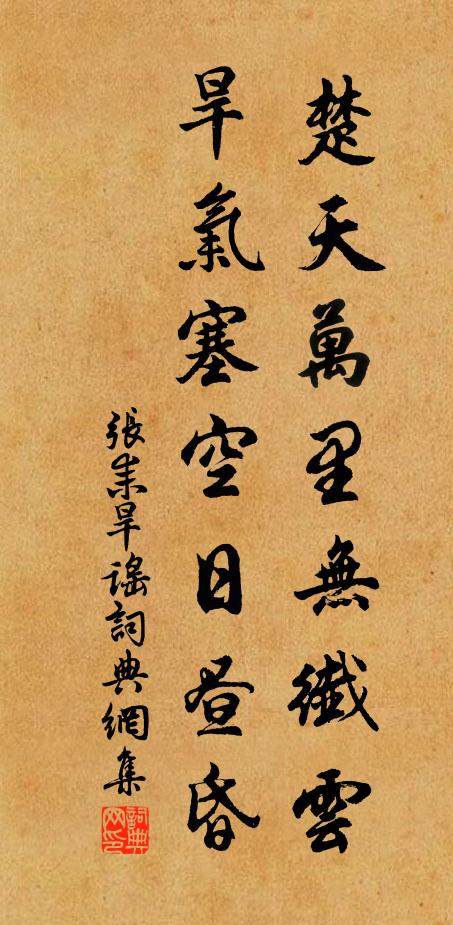 楚天萬里無纖雲
旱氣塞空日晝昏
張耒旱謠詞典網集
詞典网印